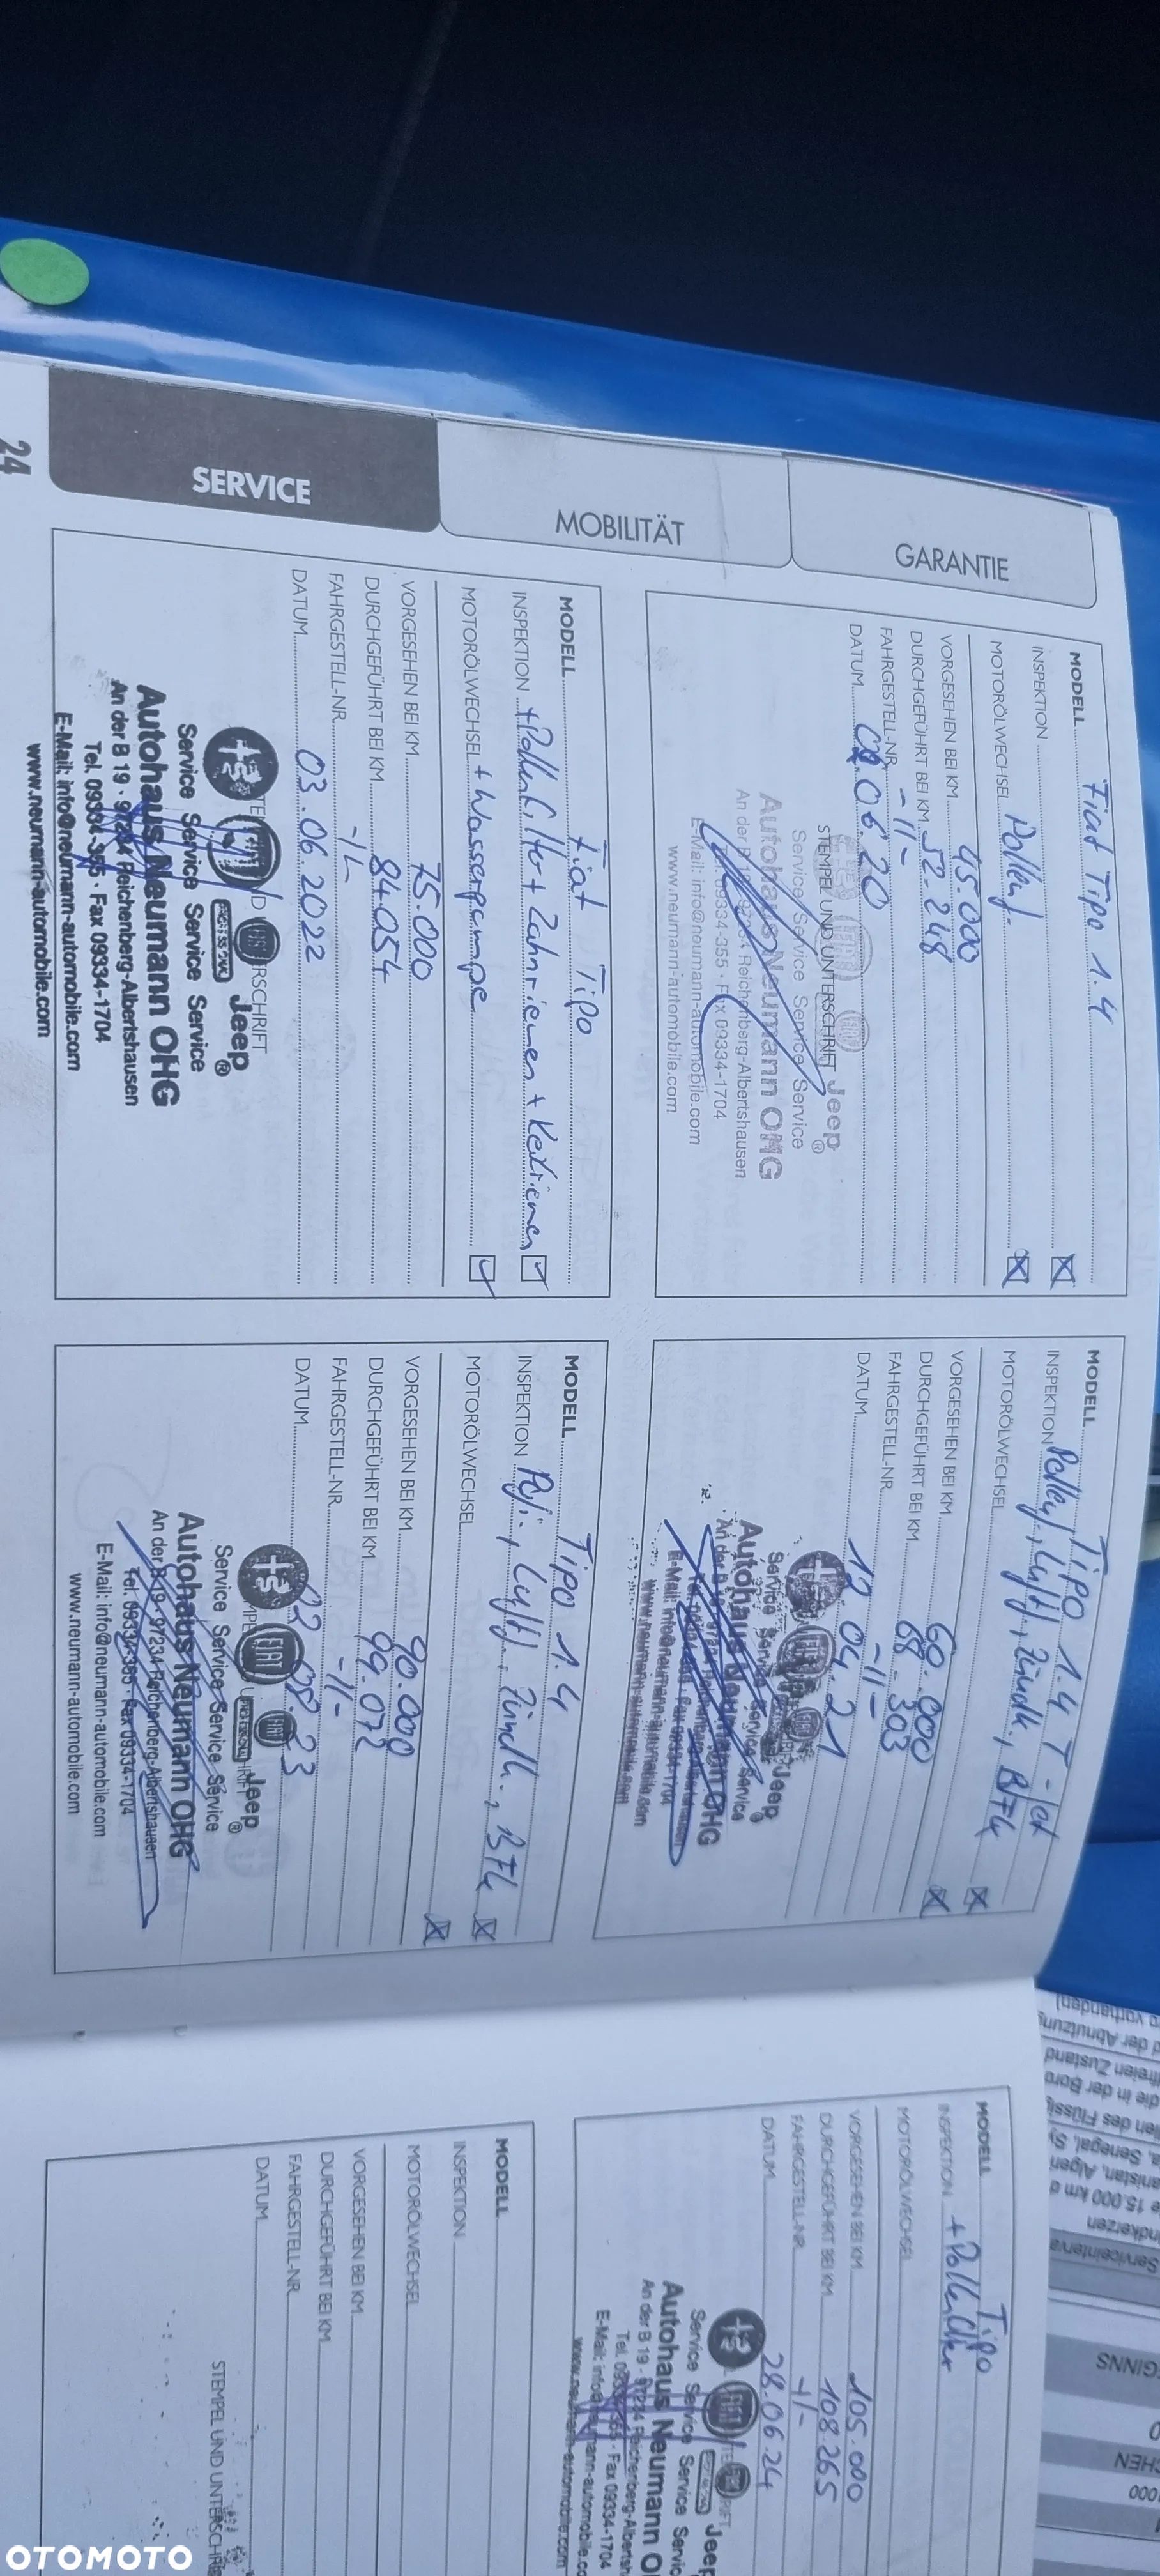 24
SERVICE
MOBILITÄT
GARANTIE
MODELL Fiat Tipo 1.4
INSPEKTION
MOTORÖLWECHSEL Pollenf.
VORGESEHEN BEI KM 45.000
DURCHGEFÜHRT BEI KM 52.248
FAHRGESTELL-NR. -11-
DATUM 06.20
STEMPEL UND UNTERSCHRIFT
Jeep®
Service Service Service Service
Autohaus Neumann OHG
An der B 19 · 97234 Reichenberg-Albertshausen
Tel. 09334-355 · Fax 09334-1704
E-Mail: info@neumann-automobile.com
www.neumann-automobile.com
MODELL Fiat Tipo
INSPEKTION + Pollenfilter + Zahnriemen + Keilriemen
MOTORÖLWECHSEL + Wasserpumpe
VORGESEHEN BEI KM 75.000
DURCHGEFÜHRT BEI KM 84.054
FAHRGESTELL-NR.
DATUM 03.06.2022
FIAT Jeep®
Service Service Service Service
Autohaus Neumann OHG
An der B 19 · 97234 Reichenberg-Albertshausen
Tel. 09334-355 · Fax 09334-1704
E-Mail: info@neumann-automobile.com
www.neumann-automobile.com
MODELL Tipo 1.4 T-Jet
INSPEKTION Pollenf., Luftf., Zündk., BFl
MOTORÖLWECHSEL
VORGESEHEN BEI KM 60.000
DURCHGEFÜHRT BEI KM 68.303
FAHRGESTELL-NR. -11-
DATUM 04.21
Jeep®
Service Service Service Service
Autohaus Neumann OHG
E-Mail: info@neumann-automobile.com
www.neumann-automobile.com
MODELL Tipo 1.4
INSPEKTION Luftf., Zündk., BFl
MOTORÖLWECHSEL
VORGESEHEN BEI KM 90.000
DURCHGEFÜHRT BEI KM 99.072
FAHRGESTELL-NR. -11-
DATUM 23
FIAT Jeep®
Service Service Service Service
Autohaus Neumann OHG
An der B 19 · 97234 Reichenberg-Albertshausen
Tel. 09334-355 · Fax 09334-1704
E-Mail: info@neumann-automobile.com
www.neumann-automobile.com
MODELL Tipo
INSPEKTION + Pollenfilter
MOTORÖLWECHSEL
VORGESEHEN BEI KM 105.000
DURCHGEFÜHRT BEI KM 108.265
FAHRGESTELL-NR.
DATUM 28.06.24
FIAT Jeep
Service Service Service Servic
Autohaus Neumann O
An der B 19 - 97234 Reichenberg-Albertsh
Tel. 09334-355 · Fax 09334-1704
E-Mail: info@neumann-automobile.co
www.neumann-automobile.com
MODELL
INSPEKTION
MOTORÖLWECHSEL
VORGESEHEN BEI KM
DURCHGEFÜHRT BEI KM
FAHRGESTELL-NR.
DATUM
STEMPEL UND UNTERSCHRI
Serviceinterva
ndkerzen
e 15.000 km
anistan, Algen
a, Senegal, Sy
llen des Flüssig
die in der Bord
Zustand
der Abnutzung
vorhanden)
GINNS
CHEN
000
OTOMOTO